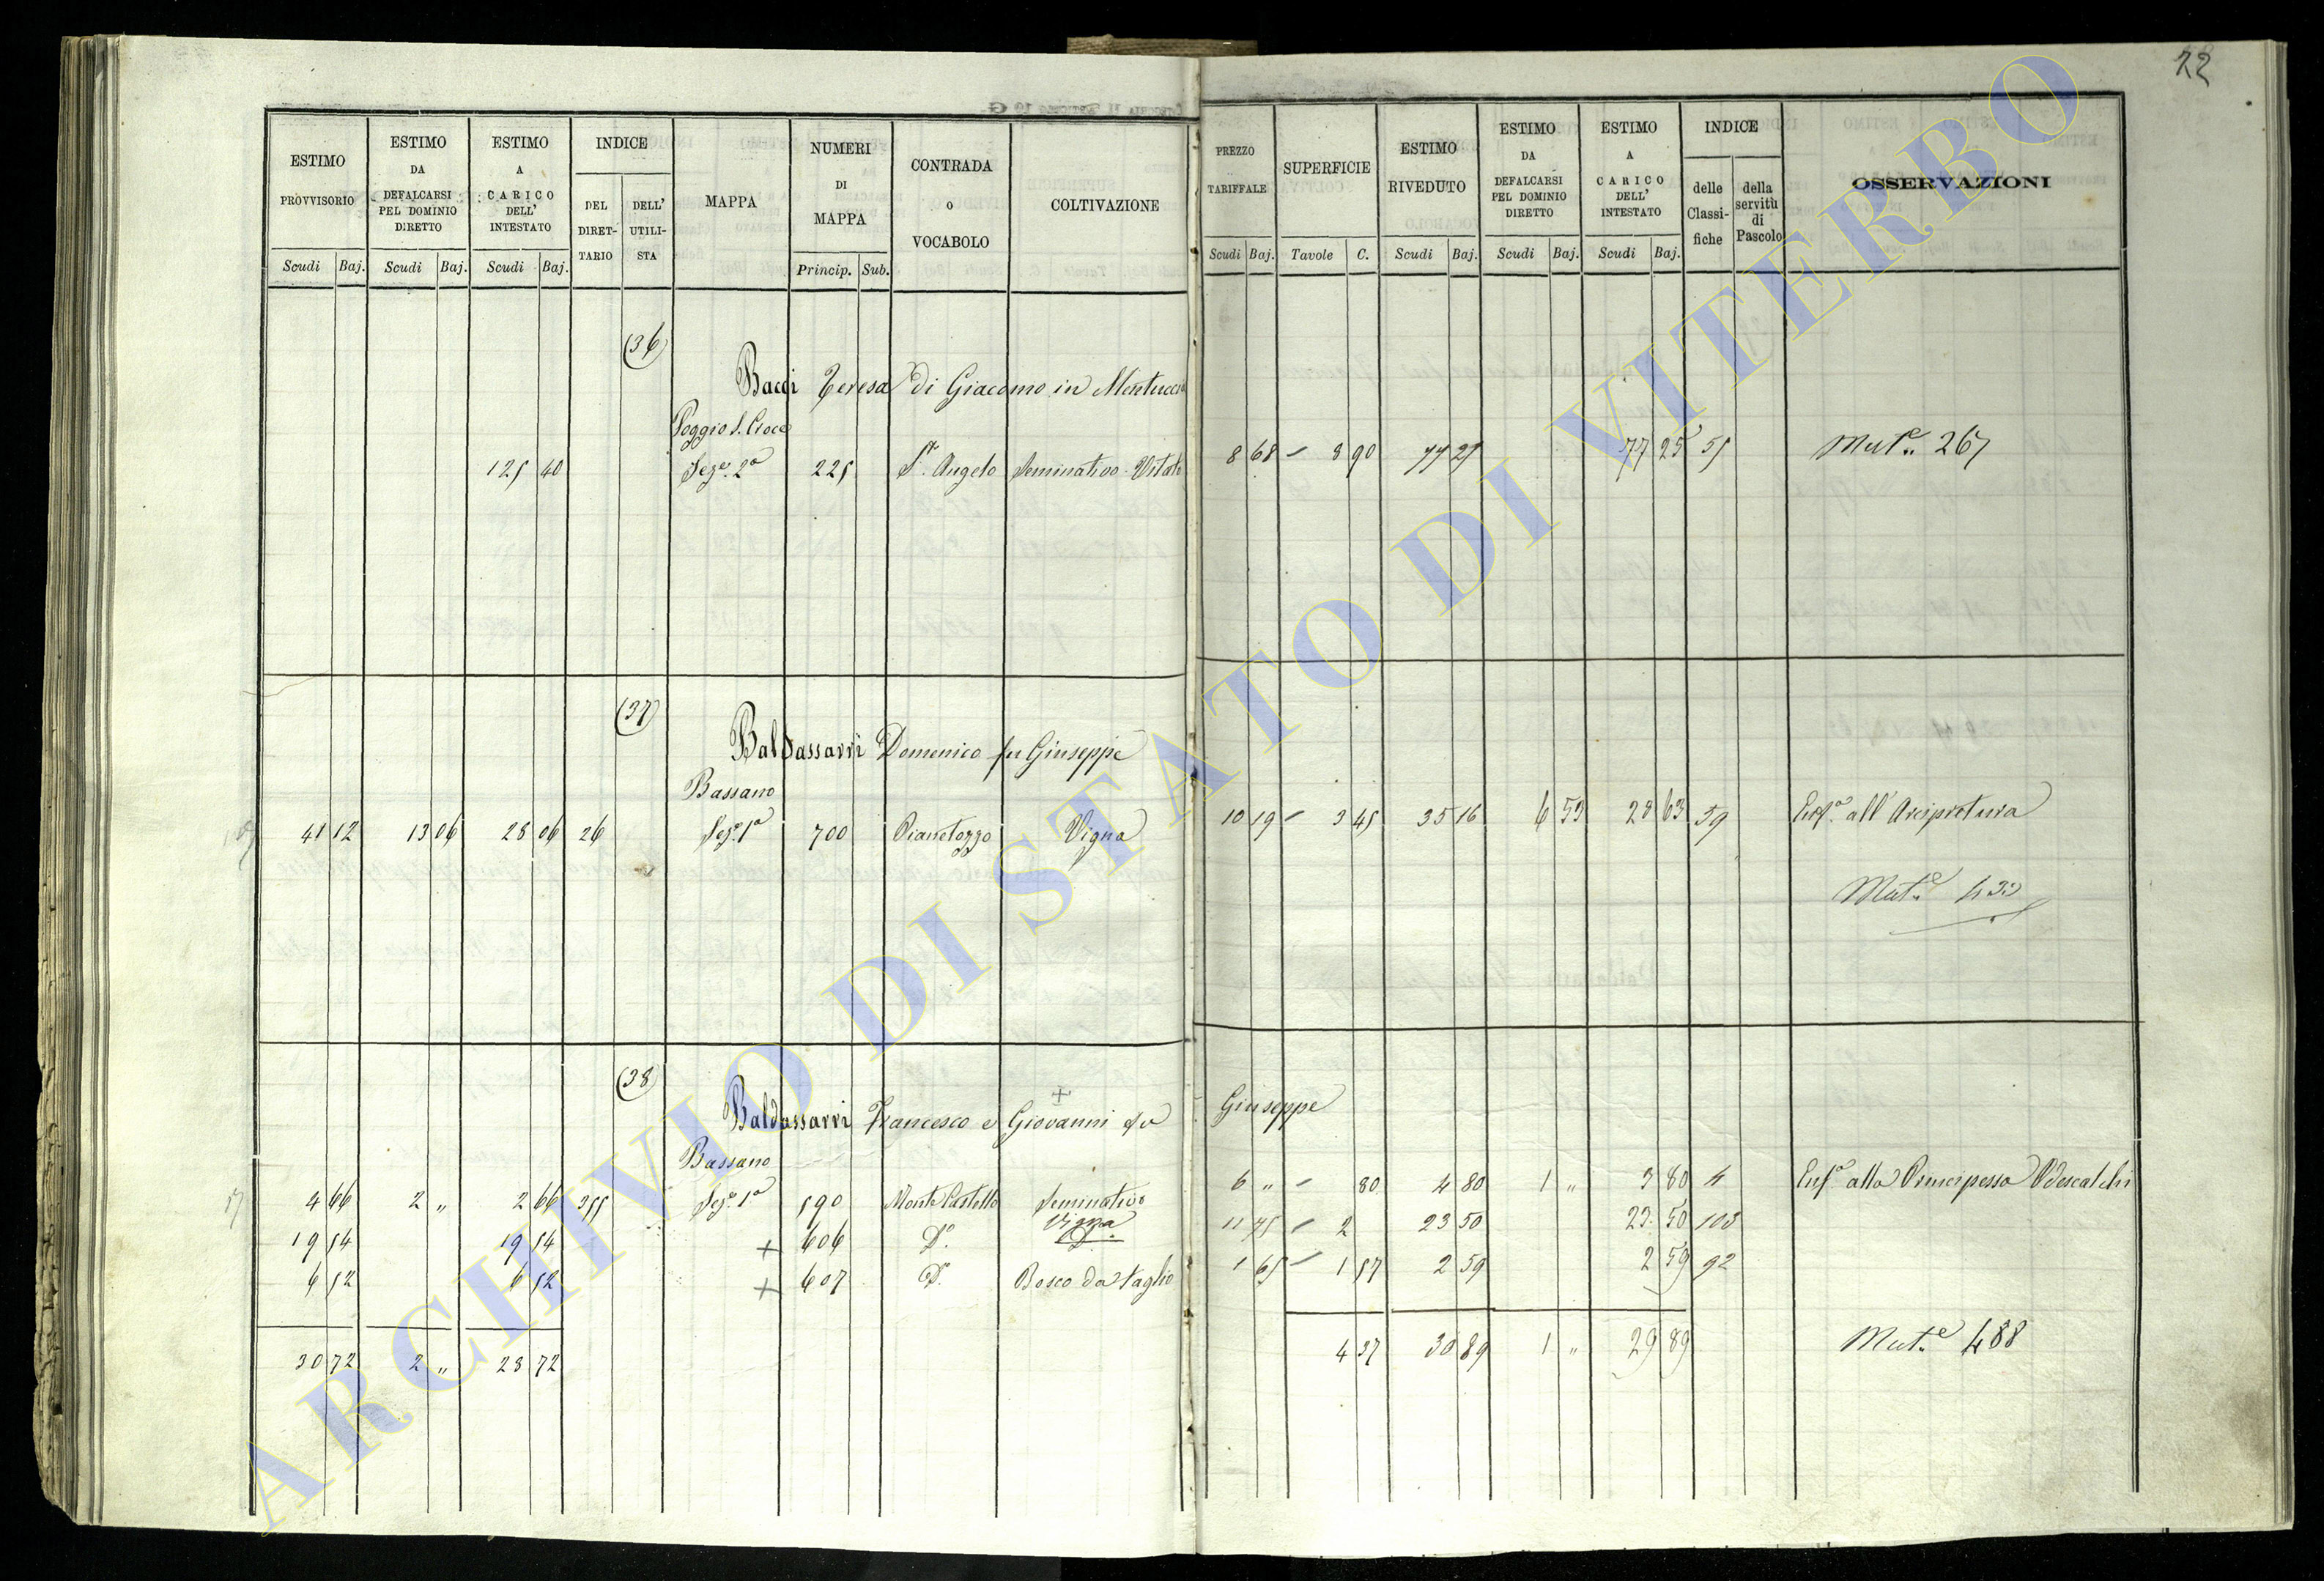 22
ESTIMO PROVVISORIO
ESTIMO DA DEFALCARSI PEL DOMINIO DIRETTO
ESTIMO A CARICO DELL' INTESTATO
INDICE
DEL DIRETTARIO
DELL' UTILISTA
MAPPA
NUMERI DI MAPPA
CONTRADA O VOCABOLO
COLTIVAZIONE
PREZZO TARIFFALE
SUPERFICIE
ESTIMO RIVEDUTO
ESTIMO DA DEFALCARSI PEL DOMINIO DIRETTO
ESTIMO A CARICO DELL' INTESTATO
INDICE
delle Classifiche
della servitù di Pascolo
OSSERVAZIONI
Scudi Baj. Scudi Baj. Scudi Baj. Princip. Sub. Scudi Baj. Tavole C. Scudi Baj. Scudi Baj. Scudi Baj.
(36)
Bacci Teresa di Giacomo in Mentucci
Poggio S. Croce
125 40 Sez.e 2a 225 S. Angelo Seminativo Vitato 8 68 8 90 77 25 77 25 55 Mut.e 267
(37)
Baldassarri Domenico fu Giuseppe
Bassano
41 12 13 06 28 06 26 Sez.e 1a 700 Pianetozzo Vigna 10 19 3 45 35 16 6 53 28 63 59 Enf.a all' Arcipretura
Mut.e 433
(38)
Baldassarri Francesco e Giovanni fu Giuseppe
Bassano
4 66 2 " 2 66 355 Sez.e 1a 590 Monte Castello Seminativo 6 " 80 4 80 1 " 3 80 4 Enf.a alla Principessa Odescalchi
19 54 19 54 + 606 D.o Vigna 11 75 2 23 50 23 50 103
6 52 6 52 + 607 D.o Bosco da taglio 1 65 1 57 2 59 2 59 92
30 72 2 " 28 72 4 37 30 89 1 " 29 89 Mut.e 488
ARCHIVIO DI STATO DI VITERBO